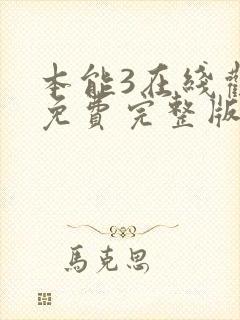 本能3在綫觀
免費完整版
馬克思